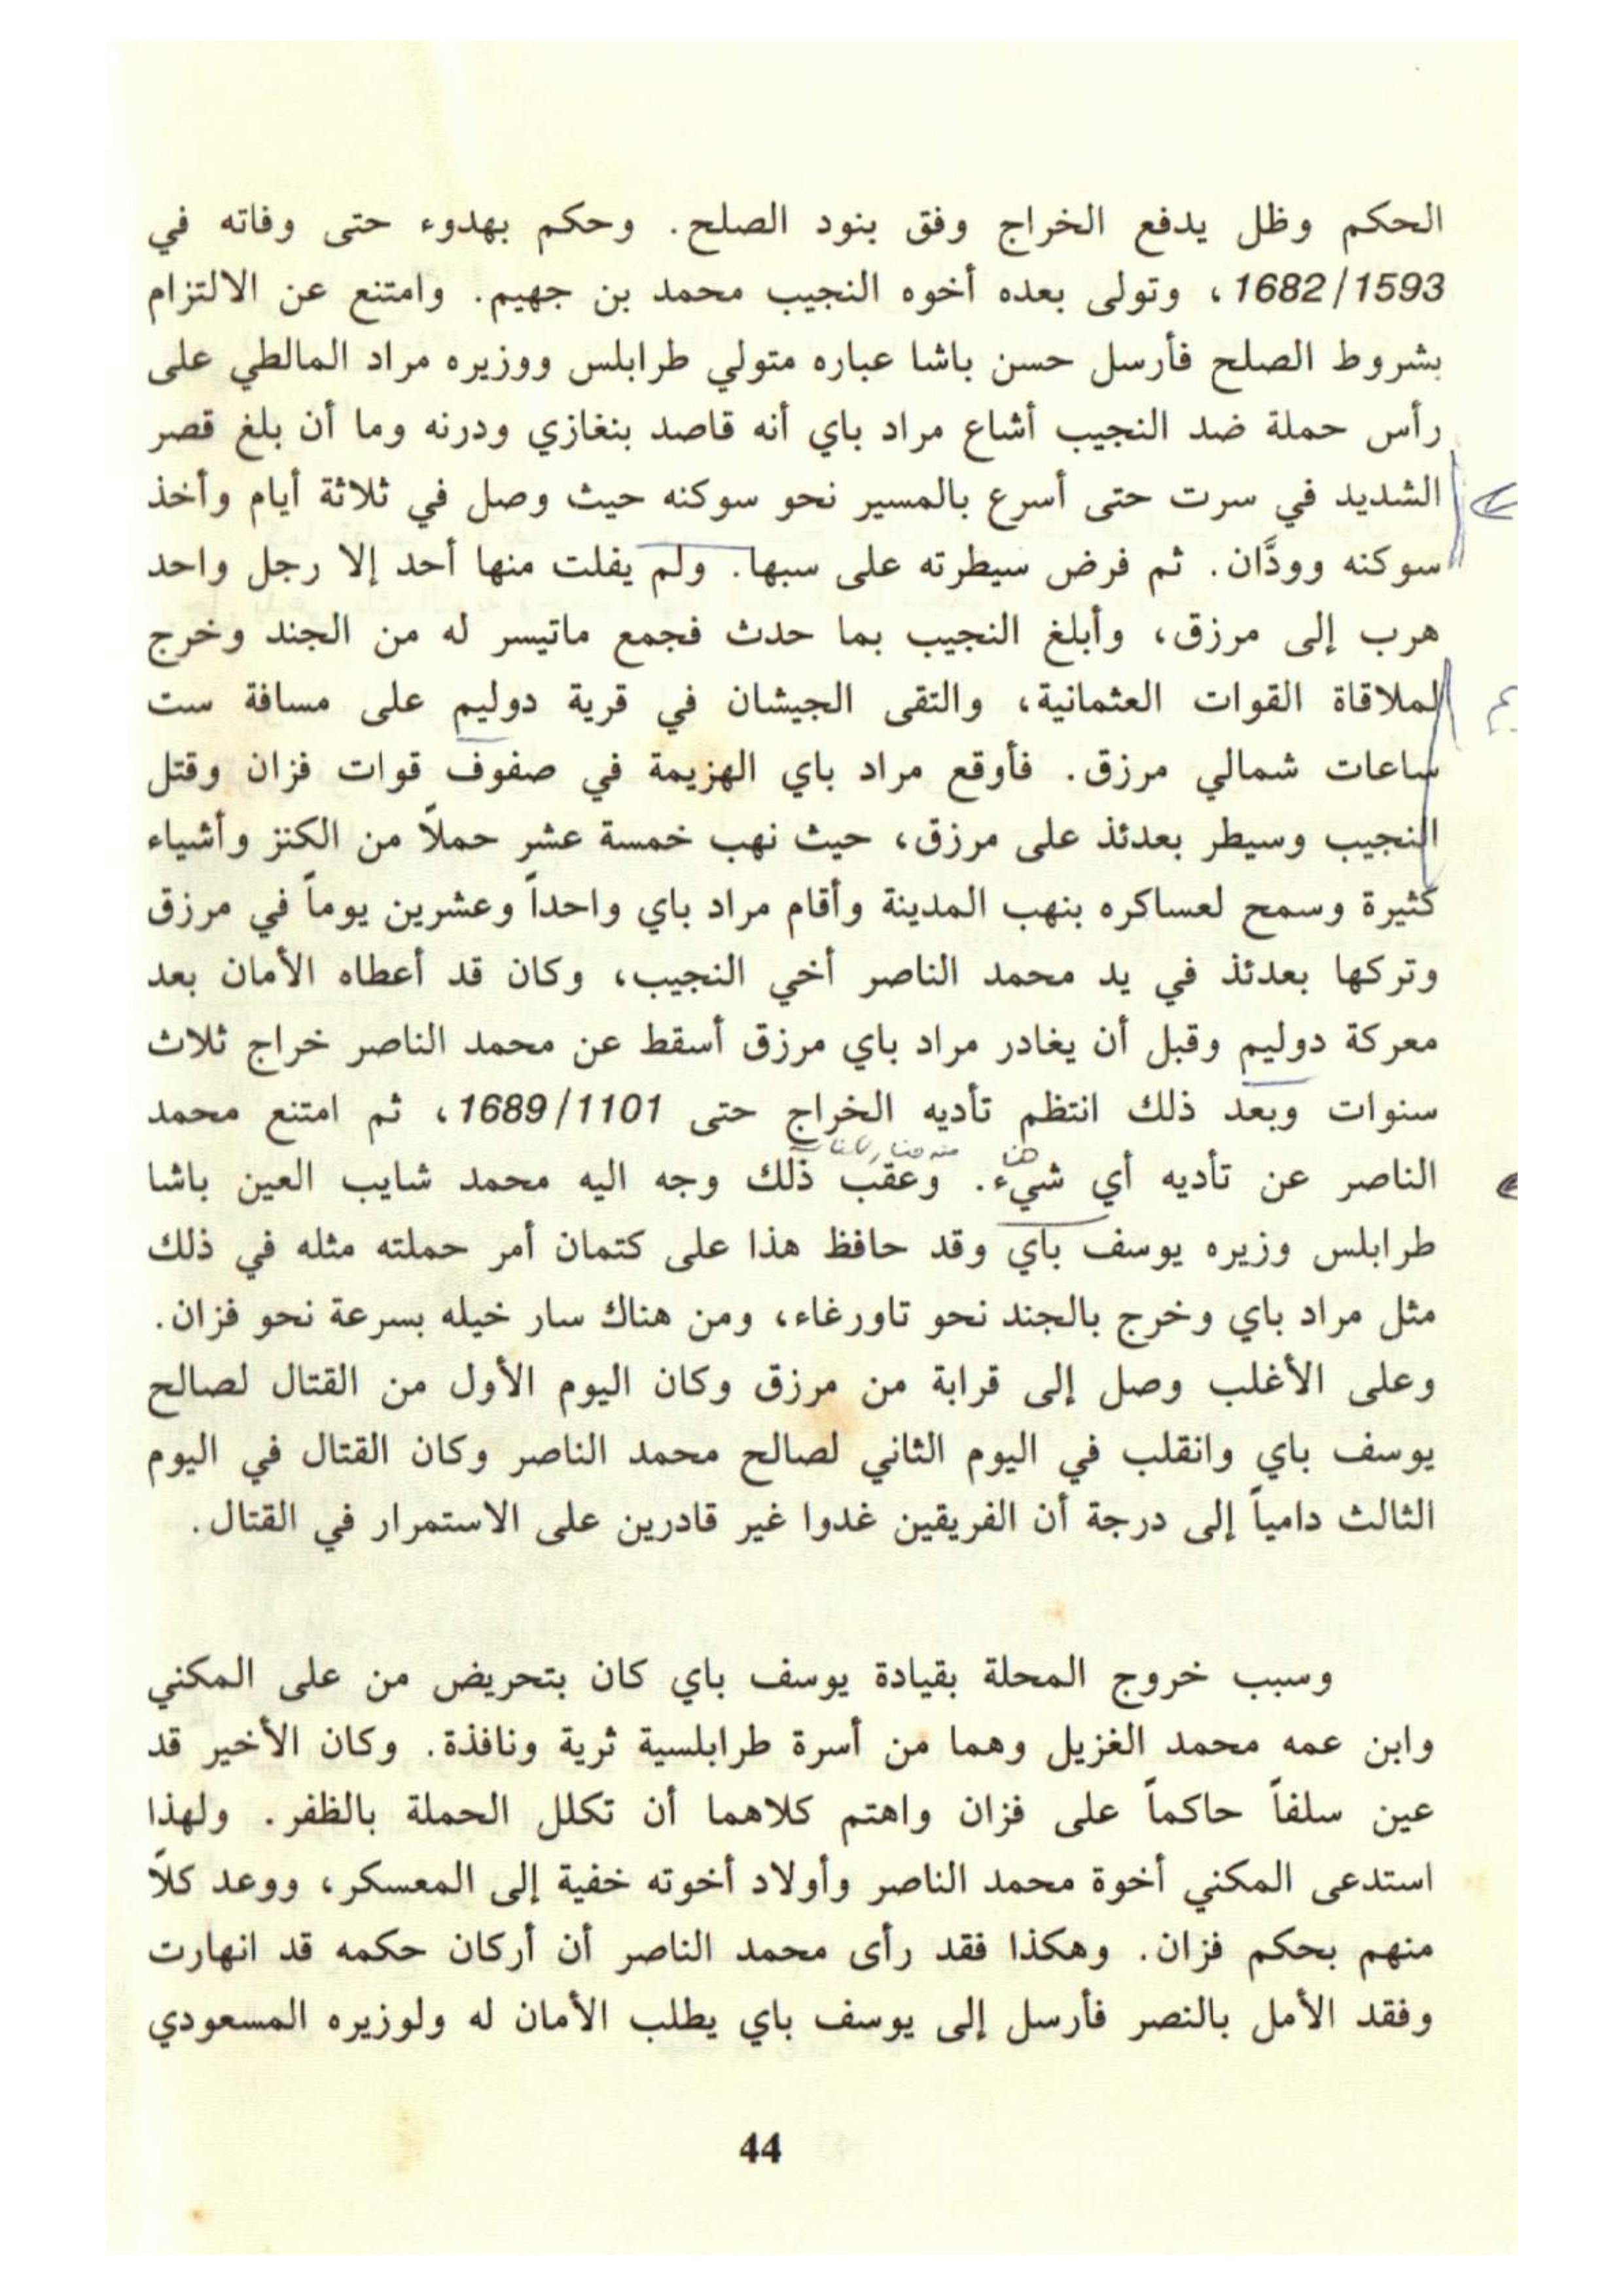 الحكم وظل يدفع الخراج وفق بنود الصلح. وحكم بهدوء حتى وفاته في
1682/1593، وتولى بعده أخوه النجيب محمد بن جهيم. وامتنع عن الالتزام
بشروط الصلح فأرسل حسن باشا عباره متولي طرابلس ووزيره مراد المالطي على
رأس حملة ضد النجيب أشاع مراد باي أنه قاصد بنغازي ودرنه وما أن بلغ قصر
الشديد في سرت حتى أسرع بالمسير نحو سوكنه حيث وصل في ثلاثة أيام وأخذ
سوكنه وودَّان. ثم فرض سيطرته على سبها. ولم يفلت منها أحد إلا رجل واحد
هرب إلى مرزق، وأبلغ النجيب بما حدث فجمع ماتيسر له من الجند وخرج
لملاقاة القوات العثمانية، والتقى الجيشان في قرية دوليم على مسافة ست
ساعات شمالي مرزق. فأوقع مراد باي الهزيمة في صفوف قوات فزان وقتل
النجيب وسيطر بعدئذ على مرزق، حيث نهب خمسة عشر حملاً من الكنز وأشياء
كثيرة وسمح لعساكره بنهب المدينة وأقام مراد باي واحداً وعشرين يوماً في مرزق
وتركها بعدئذ في يد محمد الناصر أخي النجيب، وكان قد أعطاه الأمان بعد
معركة دوليم وقبل أن يغادر مراد باي مرزق أسقط عن محمد الناصر خراج ثلاث
سنوات وبعد ذلك انتظم تأديه الخراج حتى 1689/1101، ثم امتنع محمد
الناصر عن تأديه أي شيء. وعقب ذلك وجه اليه محمد شايب العين باشا
طرابلس وزيره يوسف باي وقد حافظ هذا على كتمان أمر حملته مثله في ذلك
مثل مراد باي وخرج بالجند نحو تاورغاء، ومن هناك سار خيله بسرعة نحو فزان.
وعلى الأغلب وصل إلى قرابة من مرزق وكان اليوم الأول من القتال لصالح
يوسف باي وانقلب في اليوم الثاني لصالح محمد الناصر وكان القتال في اليوم
الثالث دامياً إلى درجة أن الفريقين غدوا غير قادرين على الاستمرار في القتال.
وسبب خروج المحلة بقيادة يوسف باي كان بتحريض من على المكني
وابن عمه محمد الغزيل وهما من أسرة طرابلسية ثرية ونافذة. وكان الأخير قد
عين سلفاً حاكماً على فزان واهتم كلاهما أن تكلل الحملة بالظفر. ولهذا
استدعى المكني أخوة محمد الناصر وأولاد أخوته خفية إلى المعسكر، ووعد كلاً
منهم بحكم فزان. وهكذا فقد رأى محمد الناصر أن أركان حكمه قد انهارت
وفقد الأمل بالنصر فأرسل إلى يوسف باي يطلب الأمان له ولوزيره المسعودي
44